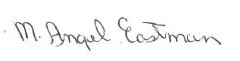 M. Angel Eastman